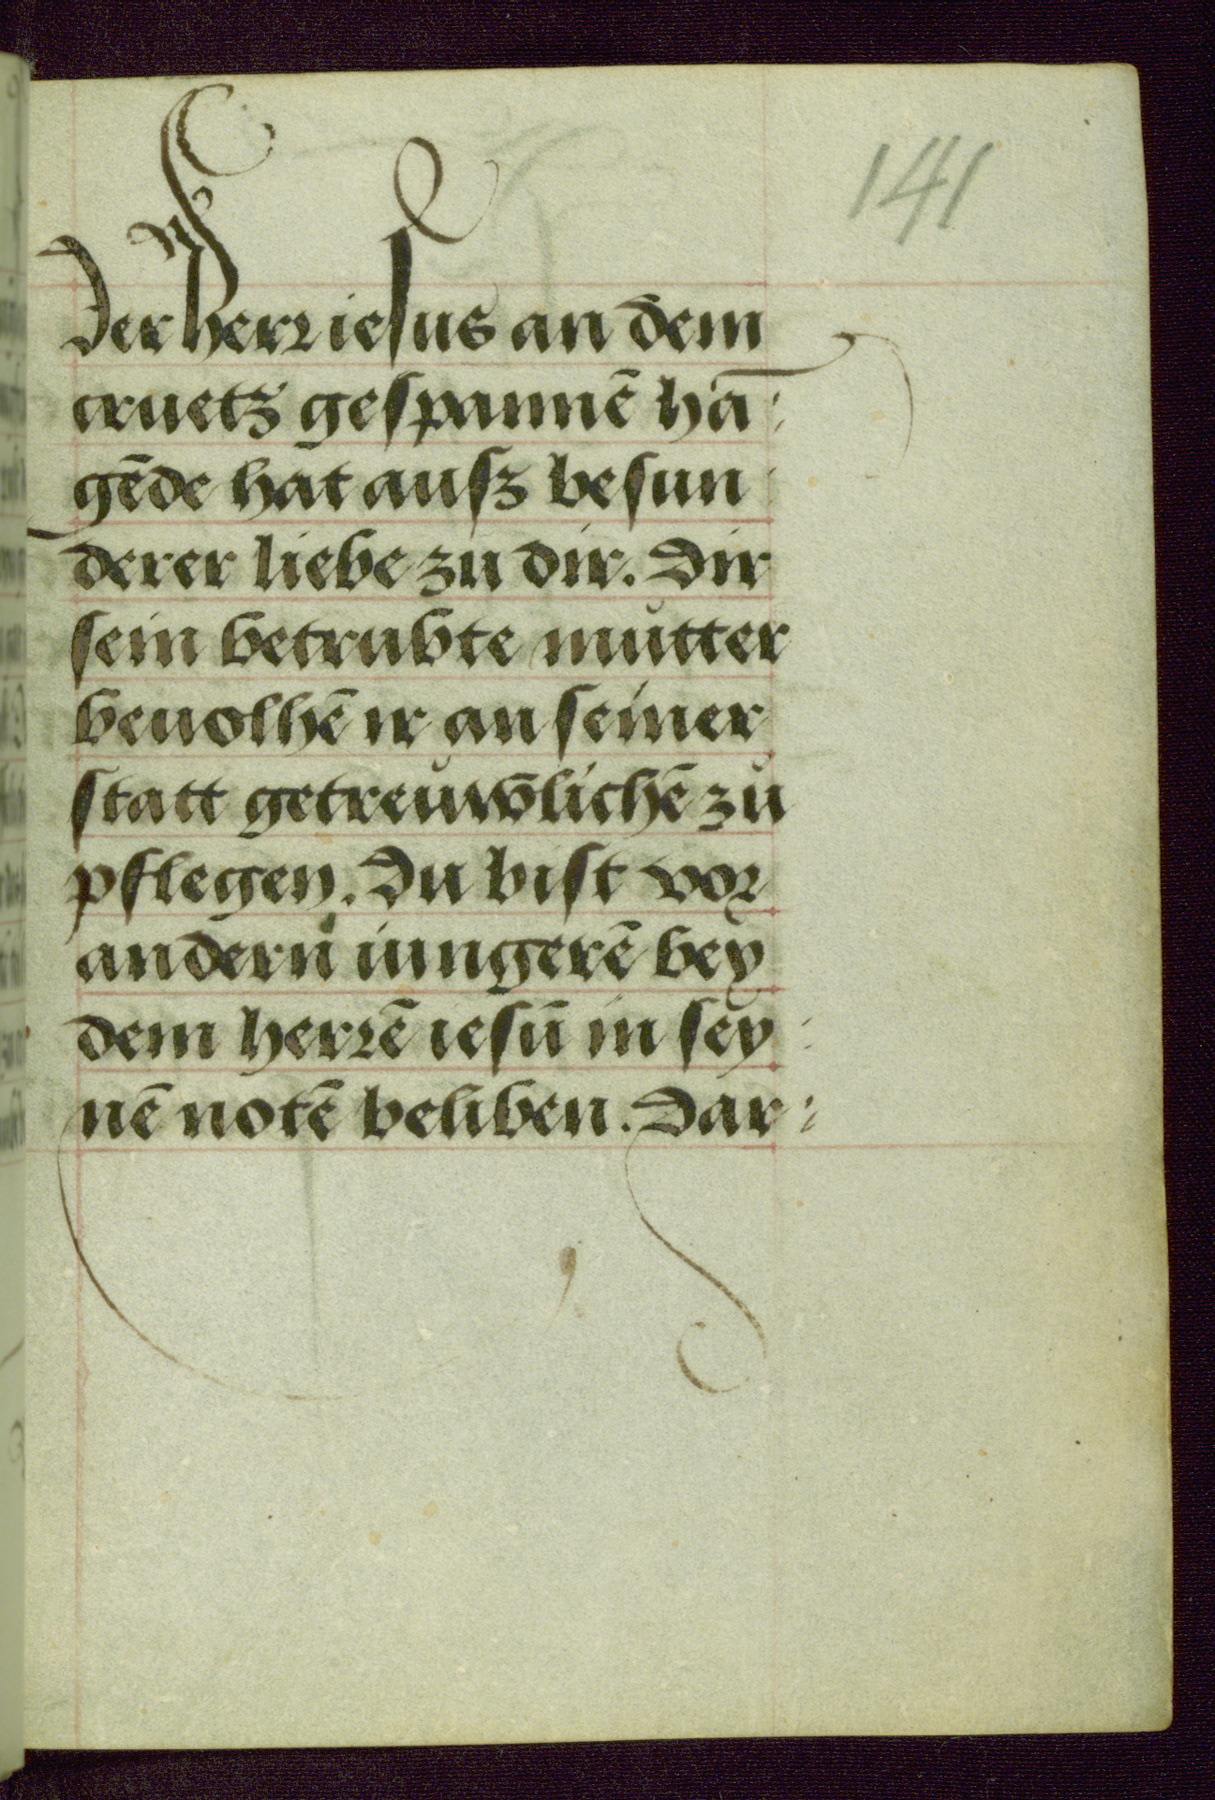 141
Der herr iesus an dem
cruetz gespannē hā:
gēde hat ausz besun:
derer liebe zu dir. Dir
sein betrubte můtter
beuolhē ir an seiner
statt getreuwͦlichē zů
pflegen. Du bist vor
andern iungerē bey
dem herrē iesū in sey:
nē notē beliben. Dar: